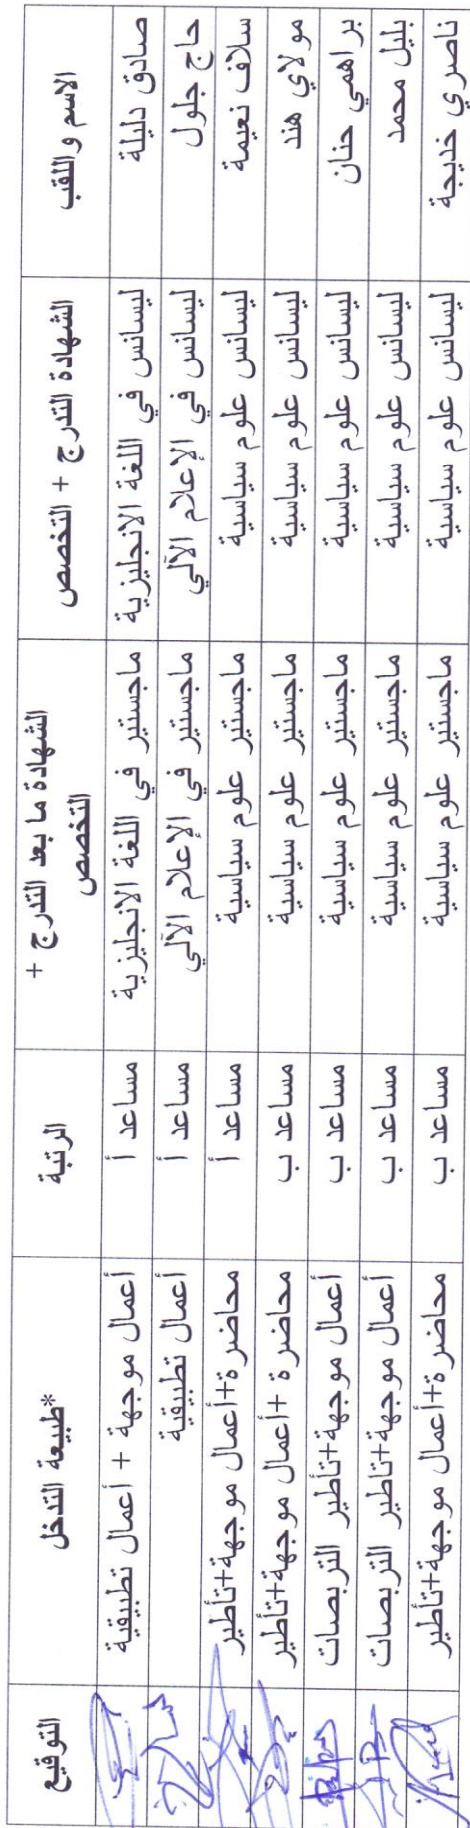 الاسم واللقب الشهادة التدرج + التخصص الشهادة ما بعد التدرج + التخصص الرتبة *طبيعة التدخل التوقيع
صادق دليلة ليسانس في اللغة الانجليزية ماجستير في اللغة الانجليزية مساعد أ أعمال موجهة + أعمال تطبيقية
حاج جلول ليسانس في الإعلام الآلي ماجستير في الإعلام الآلي مساعد أ أعمال تطبيقية
سلاف نعيمة ليسانس علوم سياسية ماجستير علوم سياسية مساعد أ محاضرة+أعمال موجهة+تأطير
مولاي هند ليسانس علوم سياسية ماجستير علوم سياسية مساعد ب محاضرة +أعمال موجهة+تأطير
براهمي حنان ليسانس علوم سياسية ماجستير علوم سياسية مساعد ب أعمال موجهة+تأطير التربصات
بليل محمد ليسانس علوم سياسية ماجستير علوم سياسية مساعد ب أعمال موجهة+تاطير التربصات
ناصري خديجة ليسانس علوم سياسية ماجستير علوم سياسية مساعد ب محاضرة+أعمال موجهة+تأطير